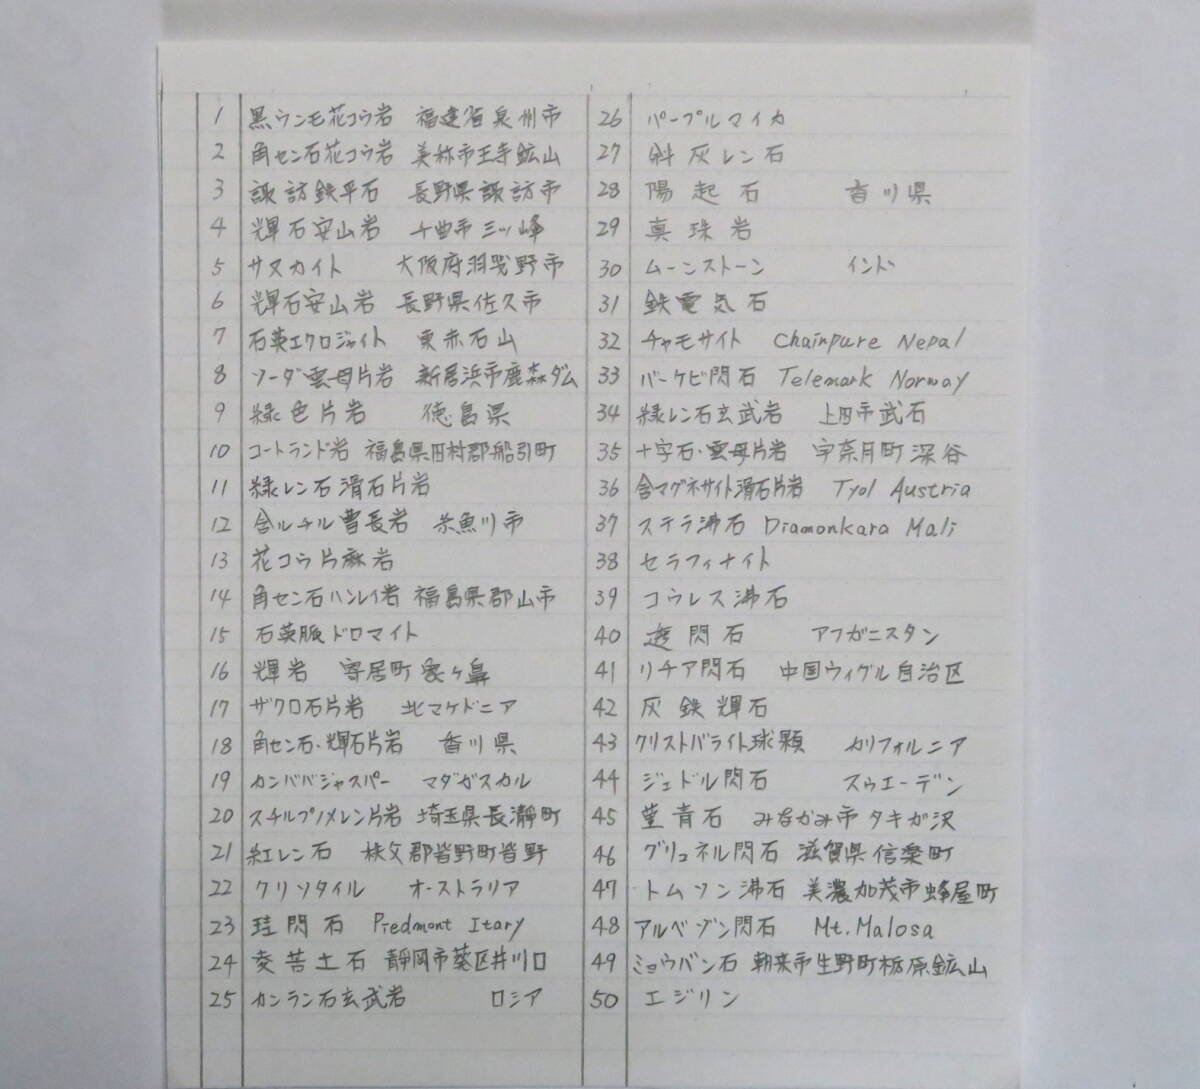 1 黒ウンモ花コウ岩 福建省泉州市
2 角セン石花コウ岩 美祢市王寺鉱山
3 諏訪鉄平石 長野県諏訪市
4 輝石安山岩 千曲市三ツ峰
5 サヌカイト 大阪府羽曳野市
6 輝石安山岩 長野県佐久市
7 石英エクロジャイト 東赤石山
8 ソーダ雲母片岩 新居浜市鹿森ダム
9 緑色片岩 徳島県
10 コートランド岩 福島県田村郡船引町
11 緑レン石滑石片岩
12 含ルチル曹長岩 糸魚川市
13 花コウ片麻岩
14 角セン石ハンレイ岩 福島県郡山市
15 石英脈ドロマイト
16 輝岩 寄居町象ヶ鼻
17 ザクロ石片岩 北マケドニア
18 角セン石・輝石片岩 香川県
19 カンババジャスパー マダガスカル
20 スチルプノメレン片岩 埼玉県長瀞町
21 紅レン石 秩父郡皆野町皆野
22 クリソタイル オーストラリア
23 珪閃石 Piedmont Itary
24 変苦土石 静岡市葵区井川口
25 カンラン石玄武岩 ロシア
26 パープルマイカ
27 斜灰レン石
28 陽起石 香川県
29 真珠岩
30 ムーンストーン インド
31 鉄電気石
32 チャモサイト Chainpure Nepal
33 バーケビ閃石 Telemark Norway
34 緑レン石玄武岩 上田市武石
35 十字石・雲母片岩 宇奈月町深谷
36 含マグネサイト滑石片岩 Tyol Austria
37 ステラ沸石 Diamonkara Mali
38 セラフィナイト
39 コウレス沸石
40 透閃石 アフガニスタン
41 リチア閃石 中国ウィグル自治区
42 灰鉄輝石
43 クリストバライト球顆 カリフォルニア
44 ジェドル閃石 スウエーデン
45 菫青石 みなかみ市タキガ沢
46 グリュネル閃石 滋賀県信楽町
47 トムソン沸石 美濃加茂市蜂屋町
48 アルベゾン閃石 Mt.Malosa
49 ミョウバン石 朝来市生野町栃原鉱山
50 エジリン